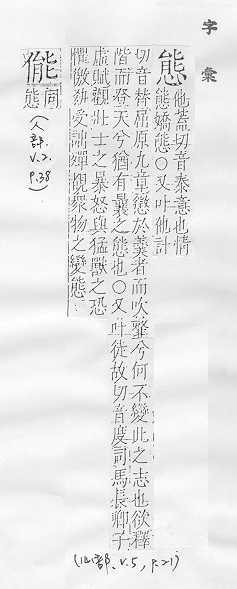 字彙
態 他蓋切音泰意也情
態嬌態○又叶他計
切音替屈原九章懲於羹者而吹韲兮何不變此之志也欲釋
階而登天兮猶有曩之態也○又叶徒故切音度司馬長卿子
虛賦觀壯士之暴怒與猛獸之恐
懼徼受詘殫覩眾物之變態
(心部, V.5, P.21)
㑷 同
態
(人部 V.2. P.38)